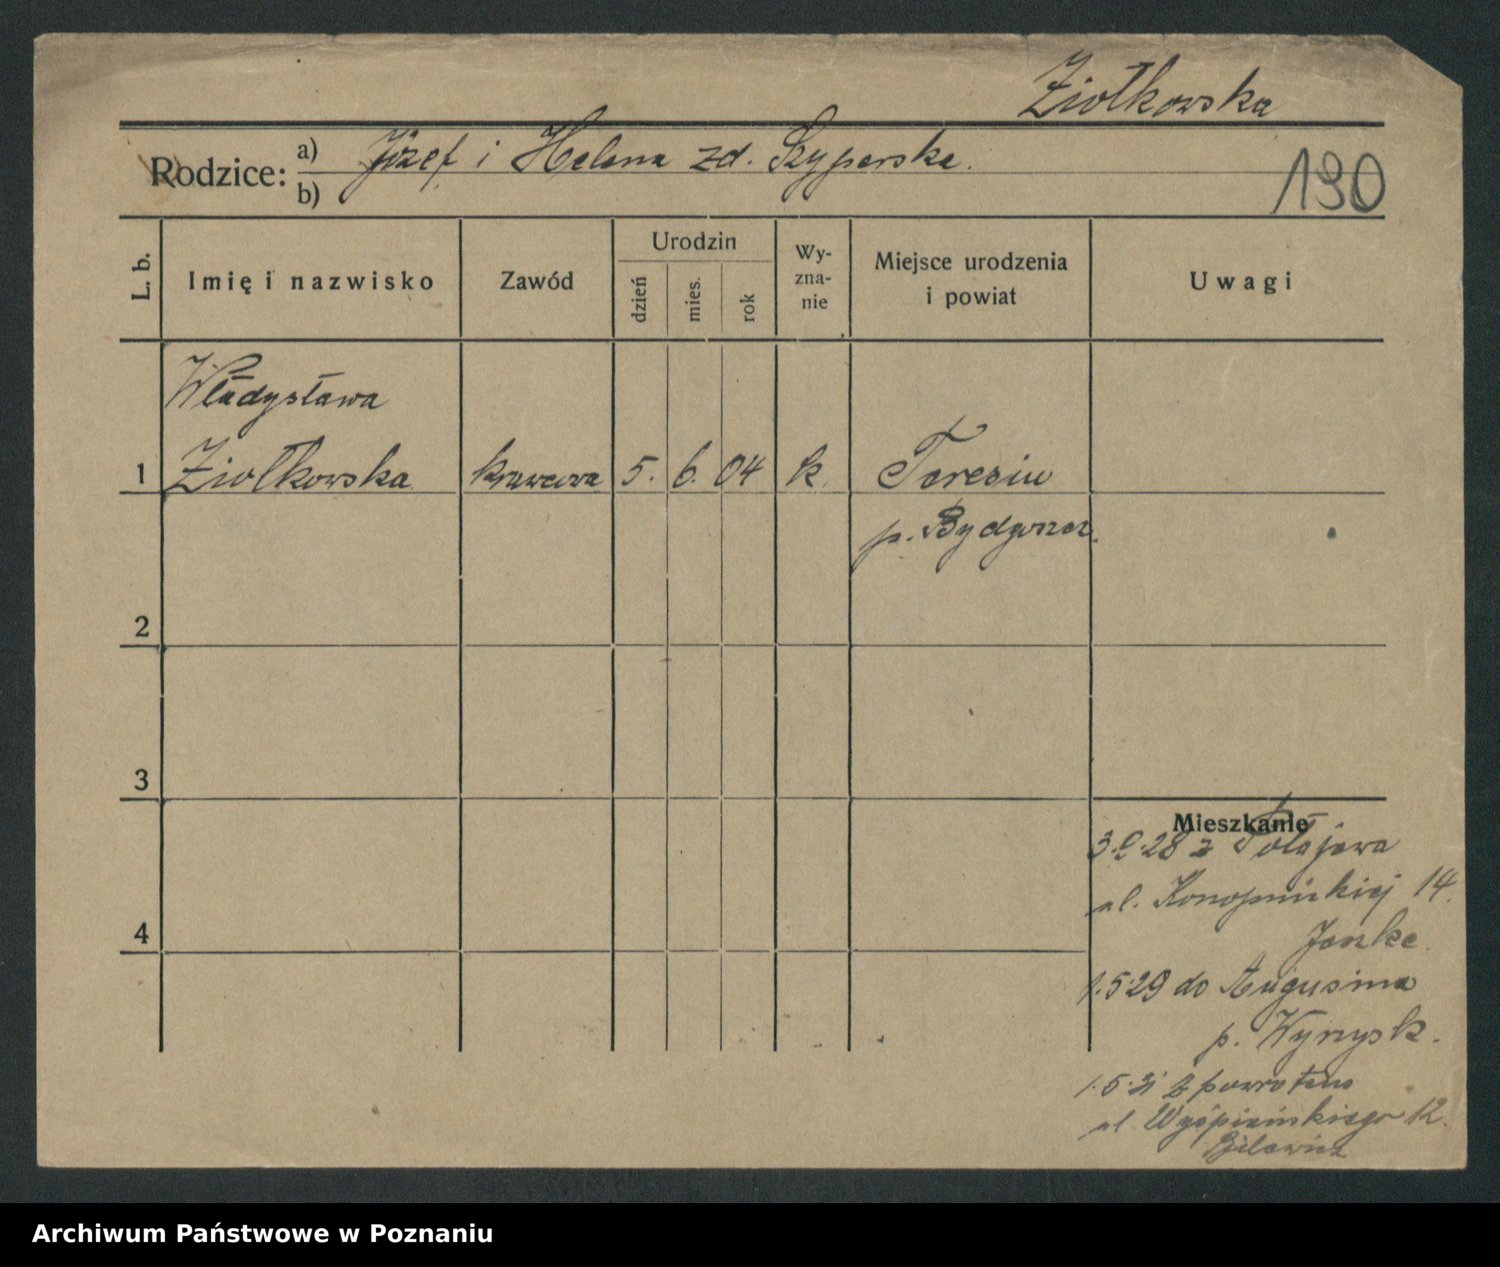 Ziółkowska
Rodzice: a) Józef i Helena zd. Szyperska.
b)
190
L. b.
Imię i nazwisko
Zawód
Urodzin
dzień
mies.
rok
Wy-
zna-
nie
Miejsce urodzenia
i powiat
Uwagi
Władysława
1 Ziółkowska krawcowa 5. 6. 04 k. Teresin
p. Bydgoszcz.
2
3
4
Mieszkanie
28 z Połajewa
ul. Konopnickiej 14.
Janke.
1.5.29 do
p. Wyrzysk.
1.5.31 z powrotem
ul. Wyspiańskiego 12.
Archiwum Państwowe w Poznaniu